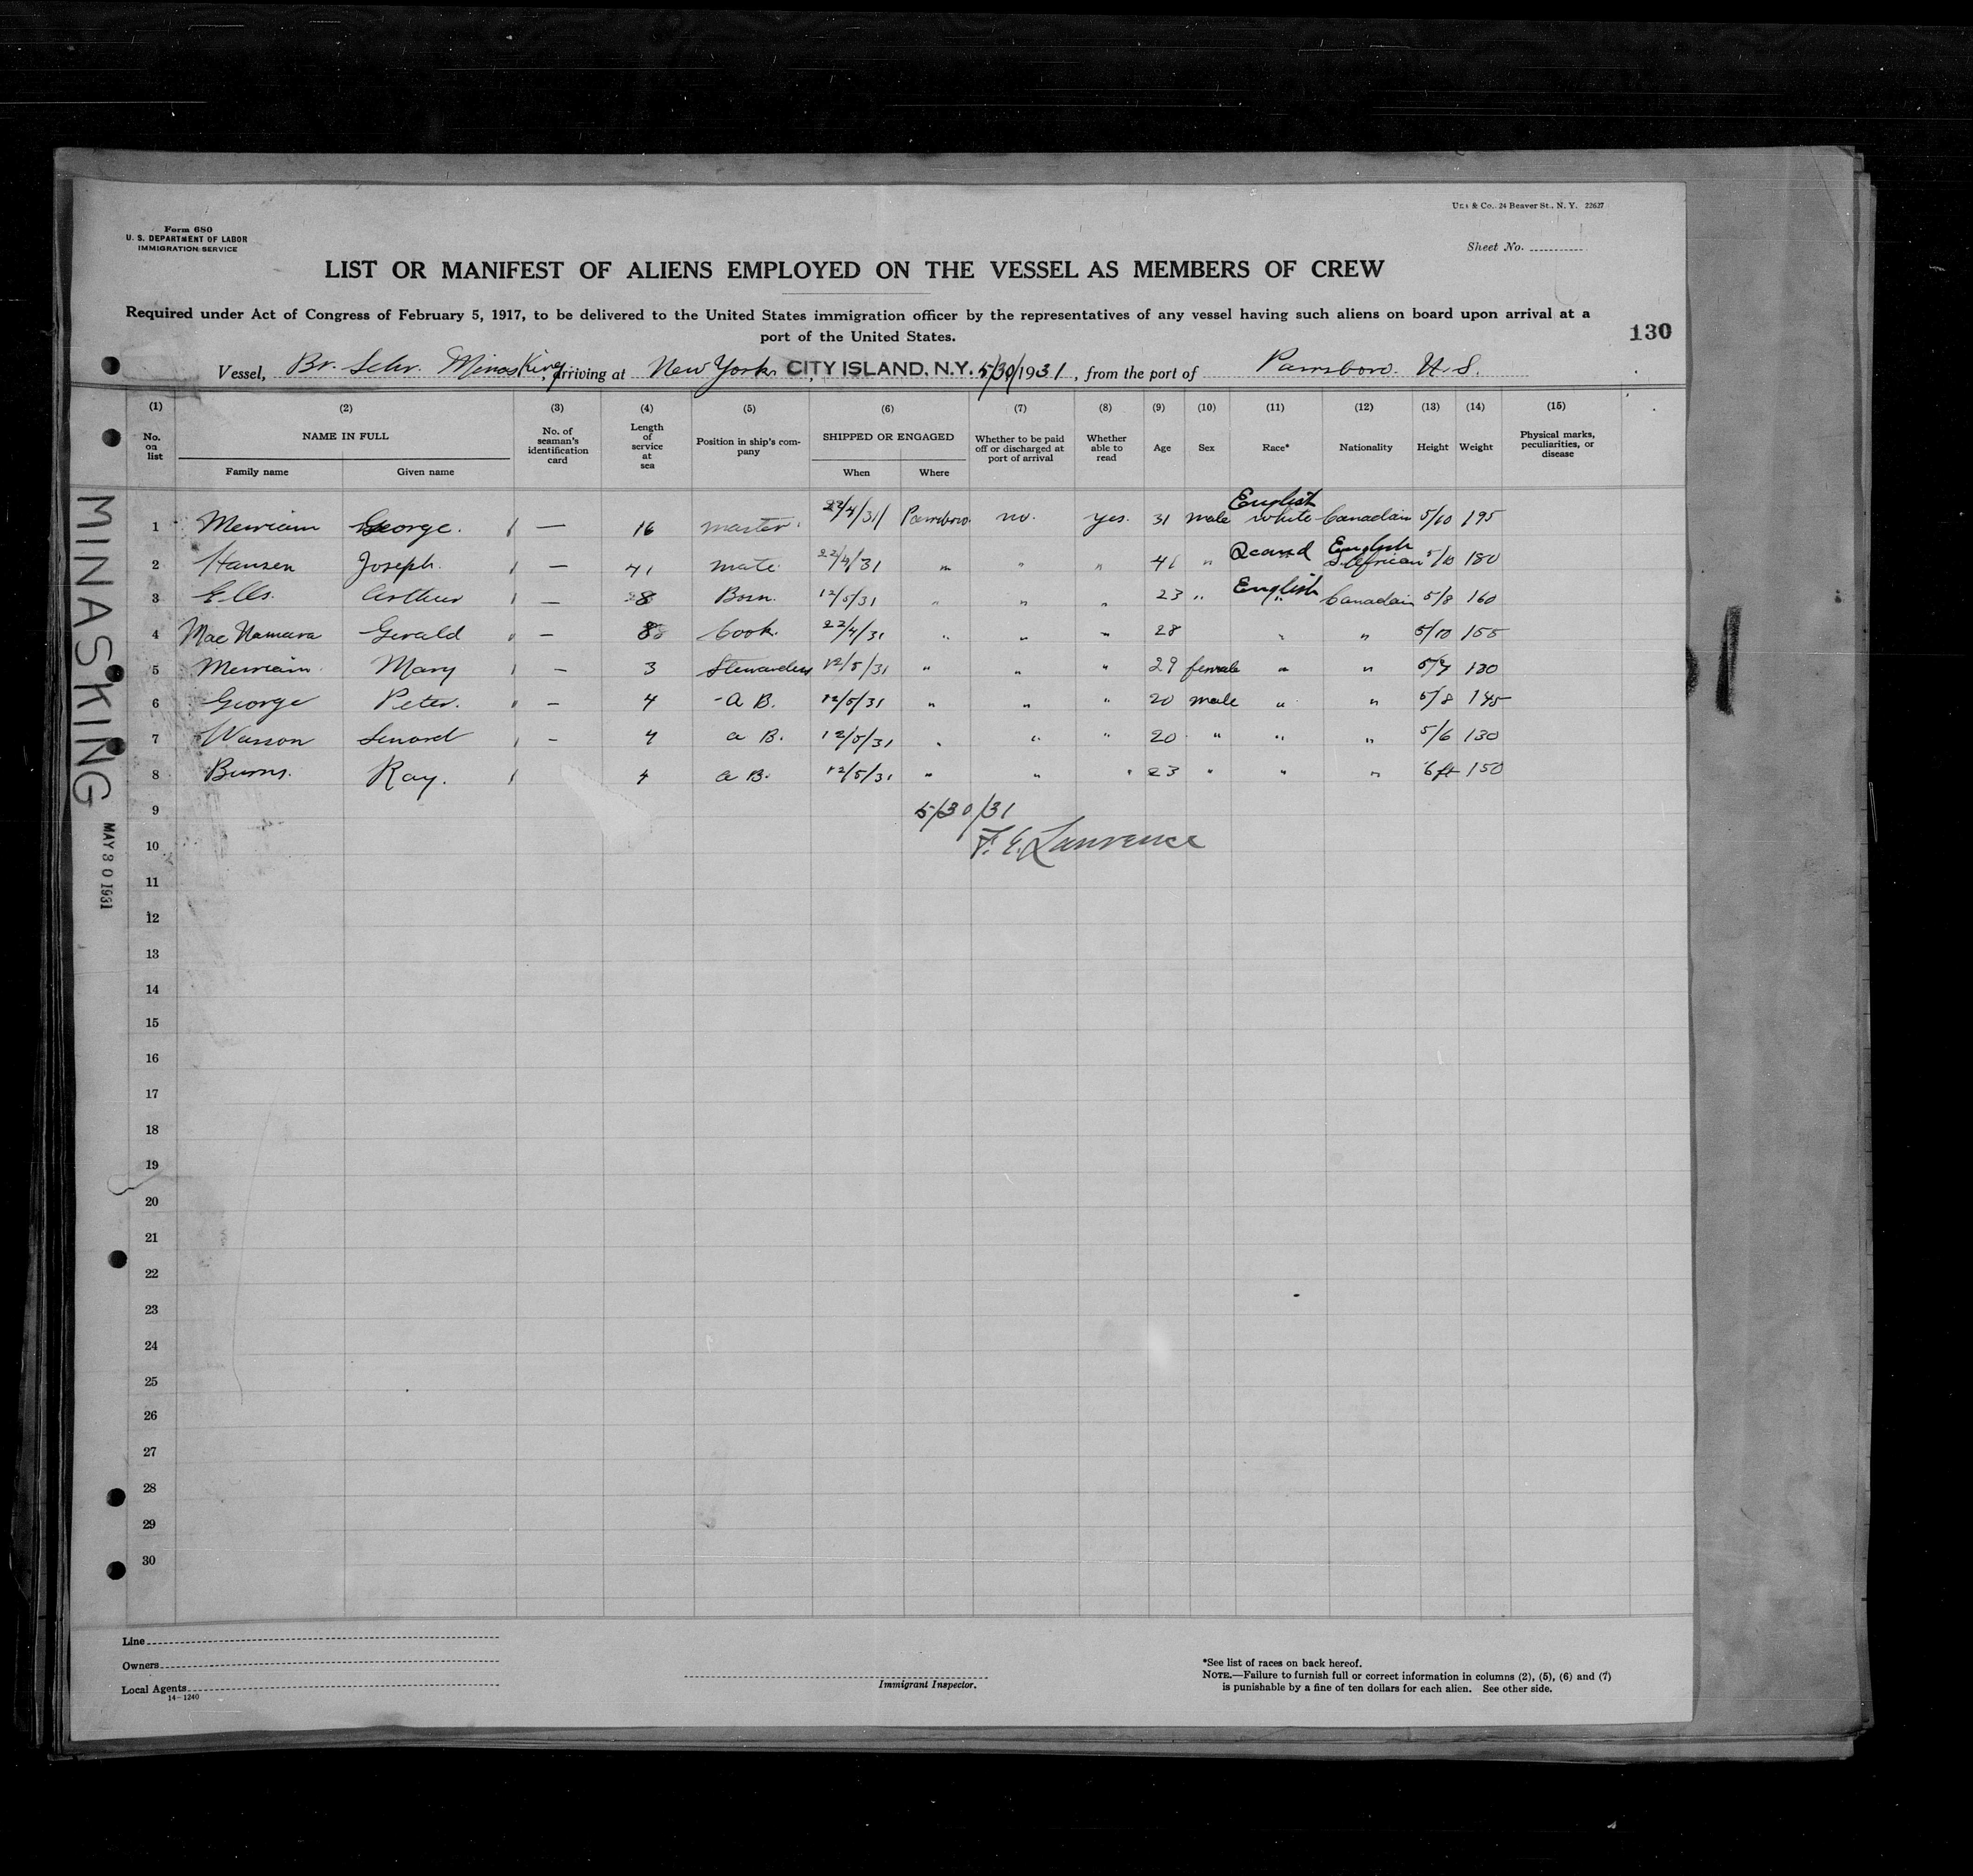 Form 680
U. S. DEPARTMENT OF LABOR
IMMIGRATION SERVICE
& Co. 24 Beaver St., N. Y. 22627
Sheet No.
LIST OR MANIFEST OF ALIENS EMPLOYED ON THE VESSEL AS MEMBERS OF CREW
Required under Act of Congress of February 5, 1917, to be delivered to the United States immigration officer by the representatives of any vessel having such aliens on board upon arrival at a
port of the United States.
130
Vessel, Br. Schr. Minas King, arriving at New York CITY ISLAND, N.Y. 5/30/1931, from the port of Parrsboro N.S.
(1) (2) (3) (4) (5) (6) (7) (8) (9) (10) (11) (12) (13) (14) (15)
No. on list NAME IN FULL No. of seaman's identification card Length of service at sea Position in ship's company SHIPPED OR ENGAGED Whether to be paid off or discharged at port of arrival Whether able to read Age Sex Race* Nationality Height Weight Physical marks, peculiarities, or disease
Family name Given name When Where
1 Merriam George. — 16 master. 22/4/31 Parrsboro no. yes. 31 male English white Canadain 5/10 195
2 Hansen Joseph. — 41 mate 22/4/31 " " " 46 " Scand English S. African 5/10 180
3 Ells. Arthur — 8 Bosn. 12/5/31 " " " 23 " English " Canadain 5/8 160
4 MacNamara Gerald — 8 Cook. 22/4/31 " " " 28 " " 5/10 155
5 Merriam Mary — 3 Stewardess 12/5/31 " " " 29 female " " 5/7 130
6 George Peter. — 4 A B. 12/5/31 " " " 20 male " " 5/8 145
7 Wasson Lenard — 4 a B. 12/5/31 " " " 20 " " " 5/6 130
8 Burns. Ray. 4 a B. 12/5/31 " " " 23 " " " 6 ft 150
9 5/30/31
10 F. E. Lawrence
11
12
13
14
15
16
17
18
19
20
21
22
23
24
25
26
27
28
29
30
MINAS KING
MAY 30 1931
Line
Owners
Local Agents
14-1240
Immigrant Inspector.
*See list of races on back hereof.
NOTE.—Failure to furnish full or correct information in columns (2), (5), (6) and (7)
is punishable by a fine of ten dollars for each alien. See other side.